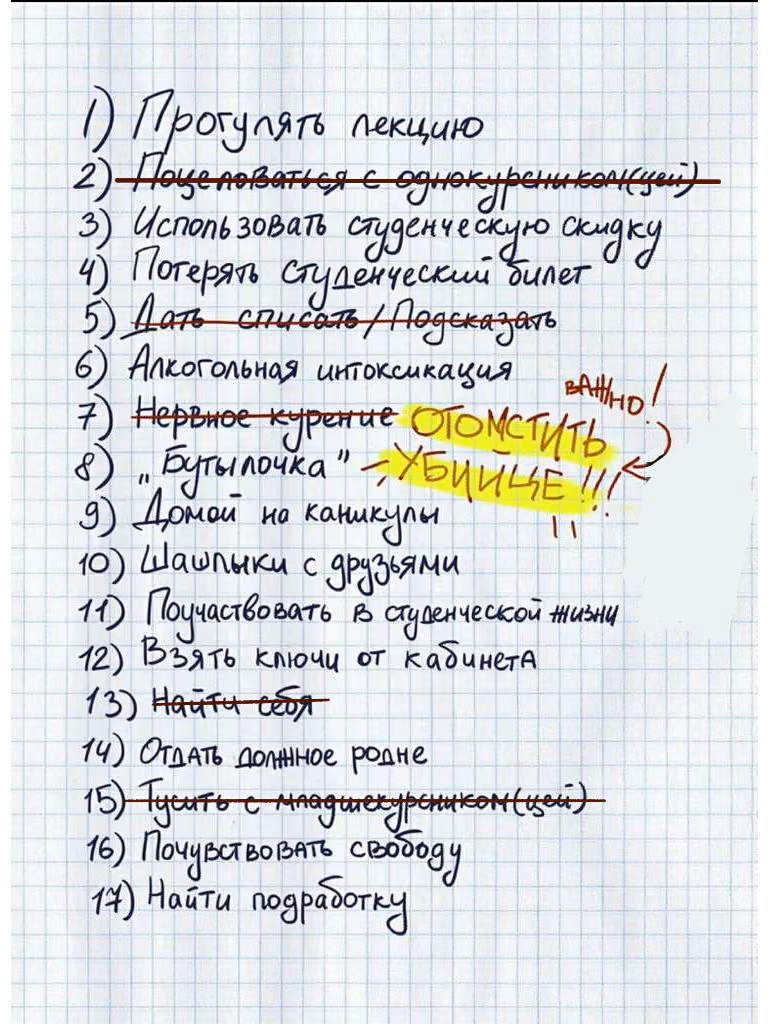 1) Прогулять лекцию
2) Поцеловаться с однокурсником(цей)
3) Использовать студенческую скидку
4) Потерять студенческий билет
5) Дать списать / Подсказать
6) Алкогольная интоксикация
ВАЖНО!
7) Нервное курение ОТОМСТИТЬ
8) „Бутылочка" – УБИЙЦЕ!!!
9) Домой на каникулы
10) Шашлыки с друзьями
11) Поучаствовать в студенческой жизни
12) Взять ключи от кабинета
13) Найти себя
14) Отдать должное родне
15) Тусить с младшекурсником(цей)
16) Почувствовать свободу
17) Найти подработку